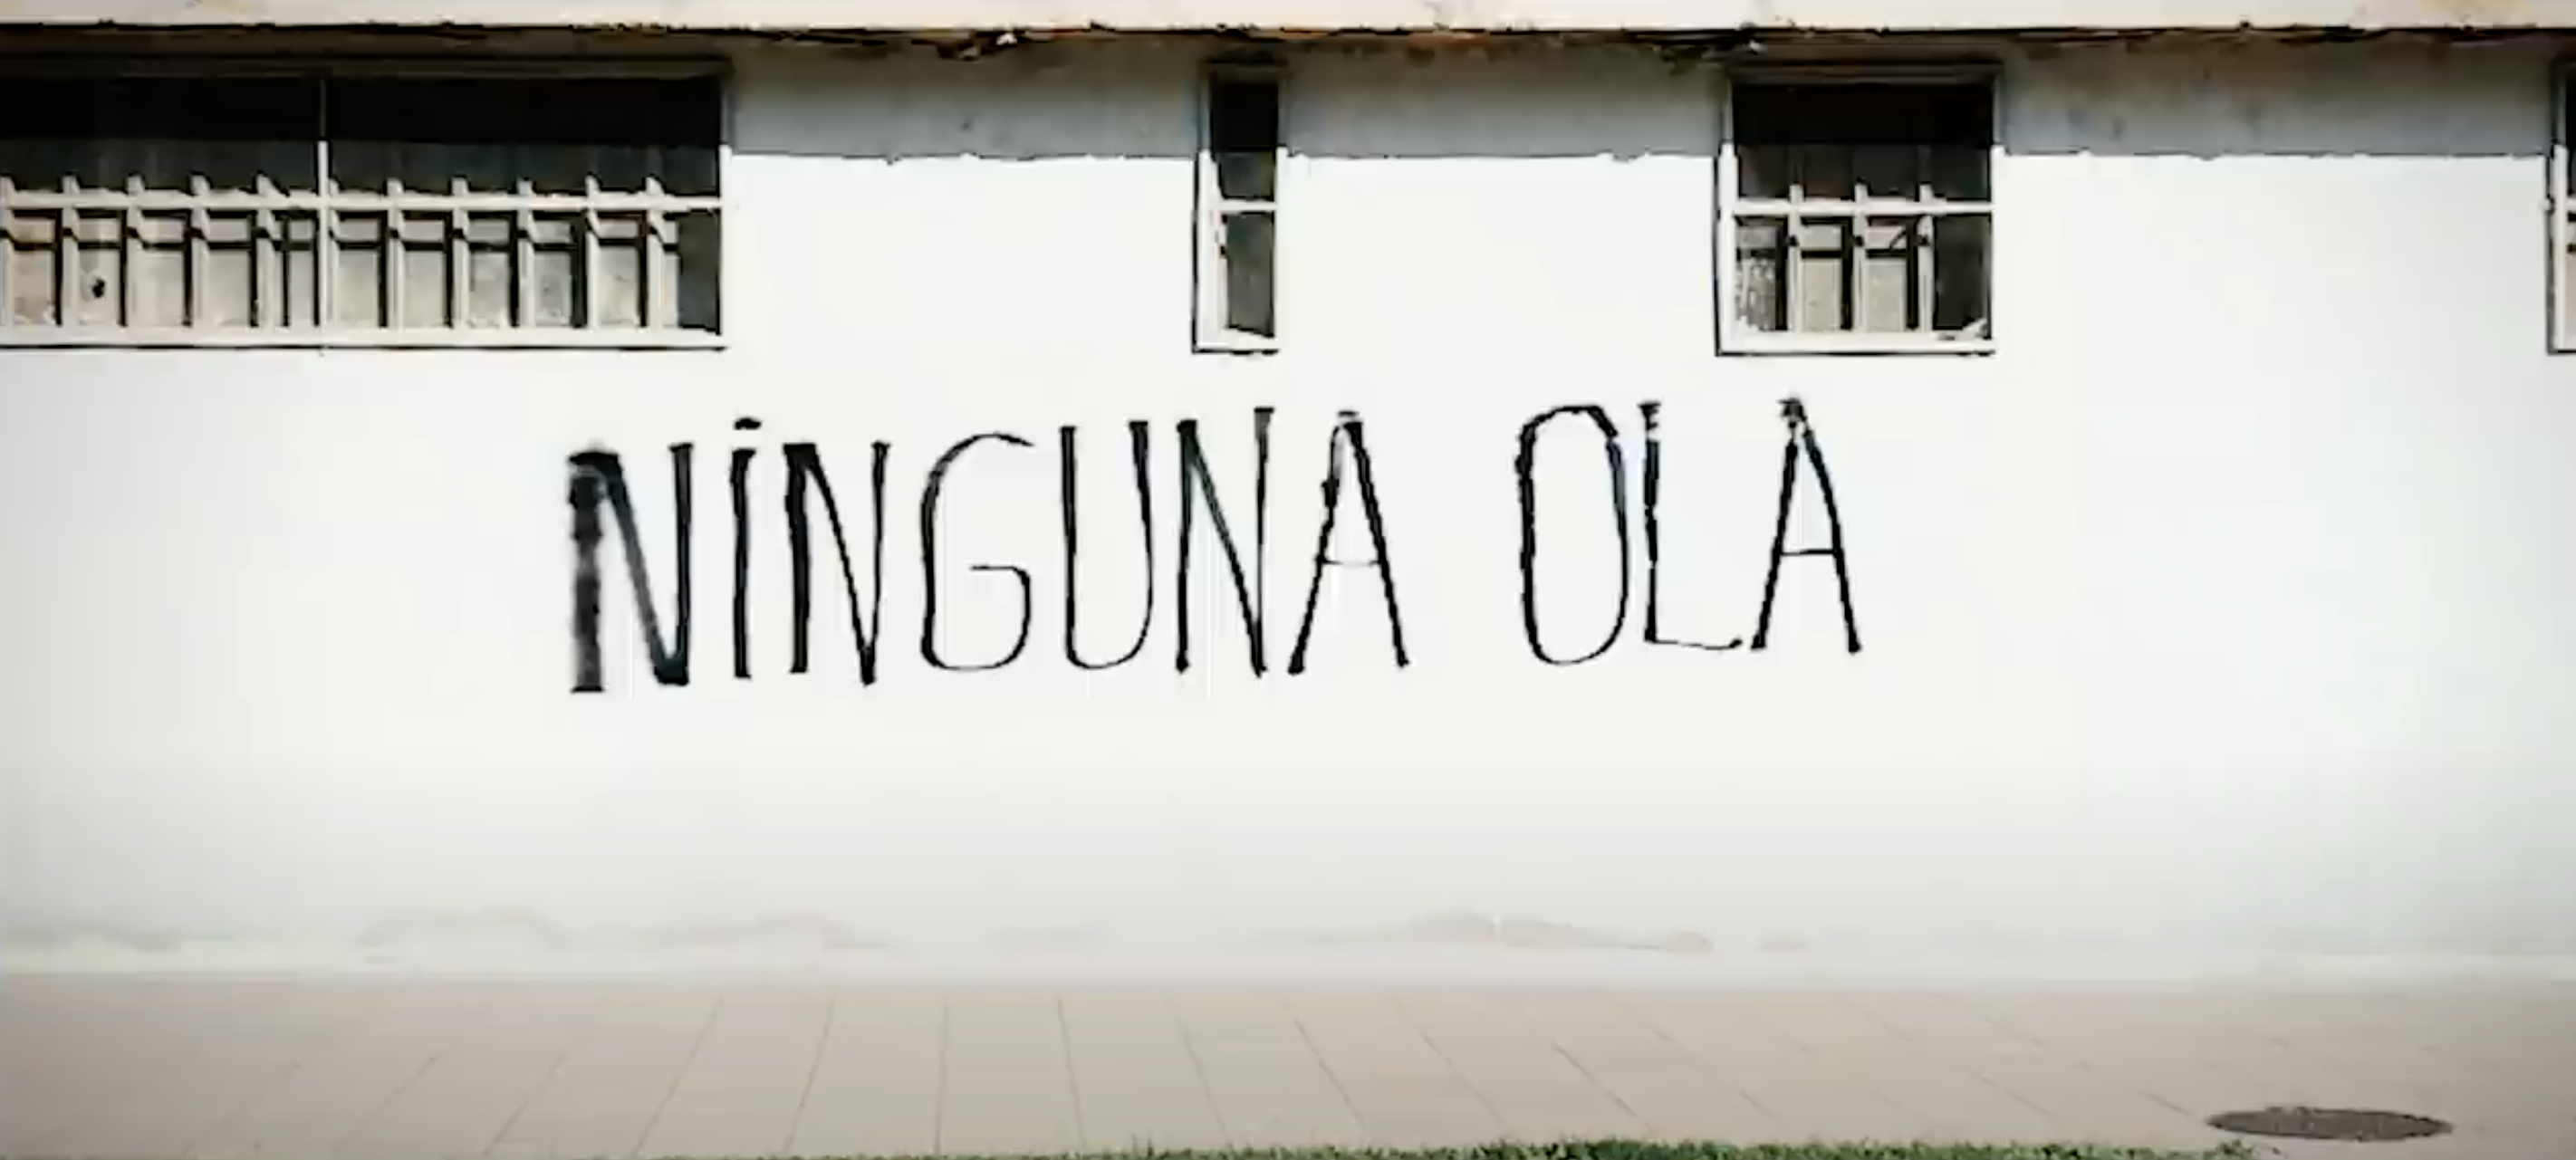 NiNGUNA OLA